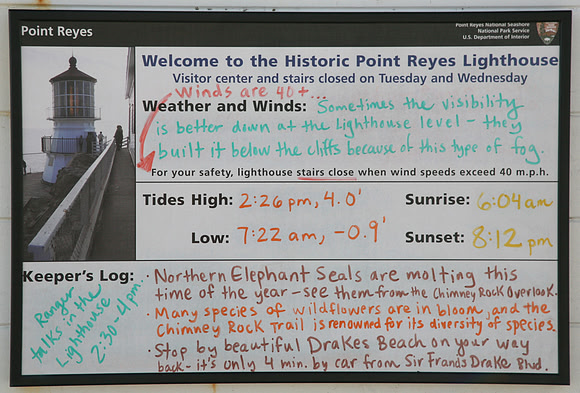 Point Reyes
Point Reyes National Seashore
National Park Service
U.S. Department of Interior
Welcome to the Historic Point Reyes Lighthouse
Visitor center and stairs closed on Tuesday and Wednesday
Winds are 40+...
Weather and Winds: Sometimes the visibility
is better down at the Lighthouse level - they
built it below the cliffs because of this type of fog.
For your safety, lighthouse stairs close when wind speeds exceed 40 m.p.h.
Tides High: 2:26 pm, 4.0'
Sunrise: 6:04 am
Low: 7:22 am, -0.9'
Sunset: 8:12 pm
Keeper's Log:
Ranger
talks in the
Lighthouse
2:30-4 pm.
· Northern Elephant Seals are molting this
time of the year - see them from the Chimney Rock Overlook.
· Many species of wildflowers are in bloom, and the
Chimney Rock Trail is renowned for its diversity of species.
· Stop by beautiful Drakes Beach on your way
back - it's only 4 min. by car from Sir Frands Drake Blvd.